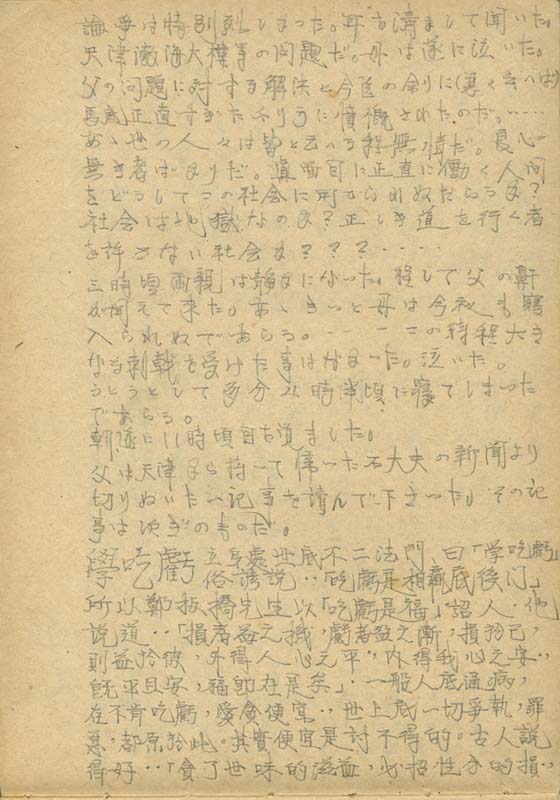 論爭は特別烈しかった。耳を濟まして聞いた。
天津澈海大樓等の問題だ。外は遂に泣いた。
父の問題に対する解決と今迄の余りに
馬鹿正直すぎたやりうに憤慨されたのだ。……
あゝ世の人々は皆と云へる程無情だ。良心
無き者ばかりだ。眞面目に正直に働く人间
をどうしてこの社会に用かられねだらうか?
社会は地獄なのか?正しき道を行く者
を許さない社会か???・・・・
三時頃両親は静かになった。程して父の鼾
が聞えて来た。あゝきっと母は今夜も寢
入られねであらう。－－－－この時程大き
な刺戟を受けた事はなかった。泣いた。
うとうとして多分山時半頃に寢てしまった
であらう。
朝遂に11時頃目を覚ました。
父は天津から持って帰った石大夫の新聞より
切りぬいた一記事を讀んで下さった。その記
事は次ぎのものだ。
學吃虧 立身處世底不二法門,曰「学吃虧」
俗諺説..「吃虧是相贏底後门」
所以鄭板橋先生以「吃虧是福」詔人.他
说道..「損者益之機,虧者盈之漸,損於己,
則益於彼,外得人心之平,内得我心之安..
既平且安,福即在是矣」.一般人底通病,
在不肯吃虧,愛貪便宜..世上底一切爭執,罪
惡,都原於此.其實便宜是討不得的.古人説
得好..「貪了世味的滋益,必招性分的損..